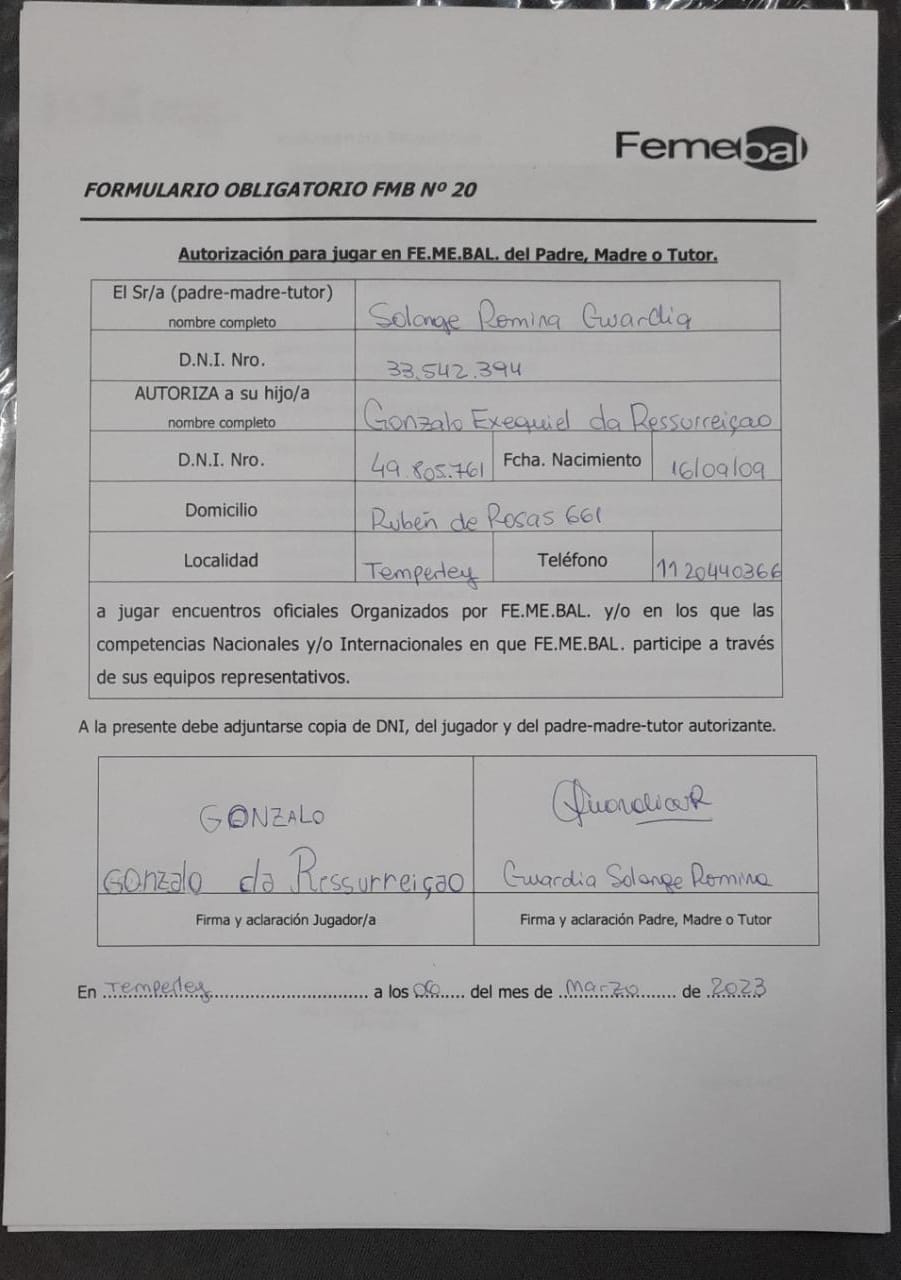 Femebal
FORMULARIO OBLIGATORIO FMB Nº 20
Autorización para jugar en FE.ME.BAL. del Padre, Madre o Tutor.
El Sr/a (padre-madre-tutor)
nombre completo
Solange Romina Guardia
D.N.I. Nro.
33.542.394
AUTORIZA a su hijo/a
nombre completo
Gonzalo Exequiel da Ressurreiçao
D.N.I. Nro. 49.805.761 Fcha. Nacimiento 16/09/09
Domicilio Rubén de Rosas 661
Localidad Temperley Teléfono 1120440366
a jugar encuentros oficiales Organizados por FE.ME.BAL. y/o en los que las
competencias Nacionales y/o Internacionales en que FE.ME.BAL. participe a través
de sus equipos representativos.
A la presente debe adjuntarse copia de DNI, del jugador y del padre-madre-tutor autorizante.
GONZALO
Gonzalo da Ressurreiçao
Firma y aclaración Jugador/a
GuardiaR
Guardia Solange Romina
Firma y aclaración Padre, Madre o Tutor
En Temperley a los 06 del mes de Marzo de 2023